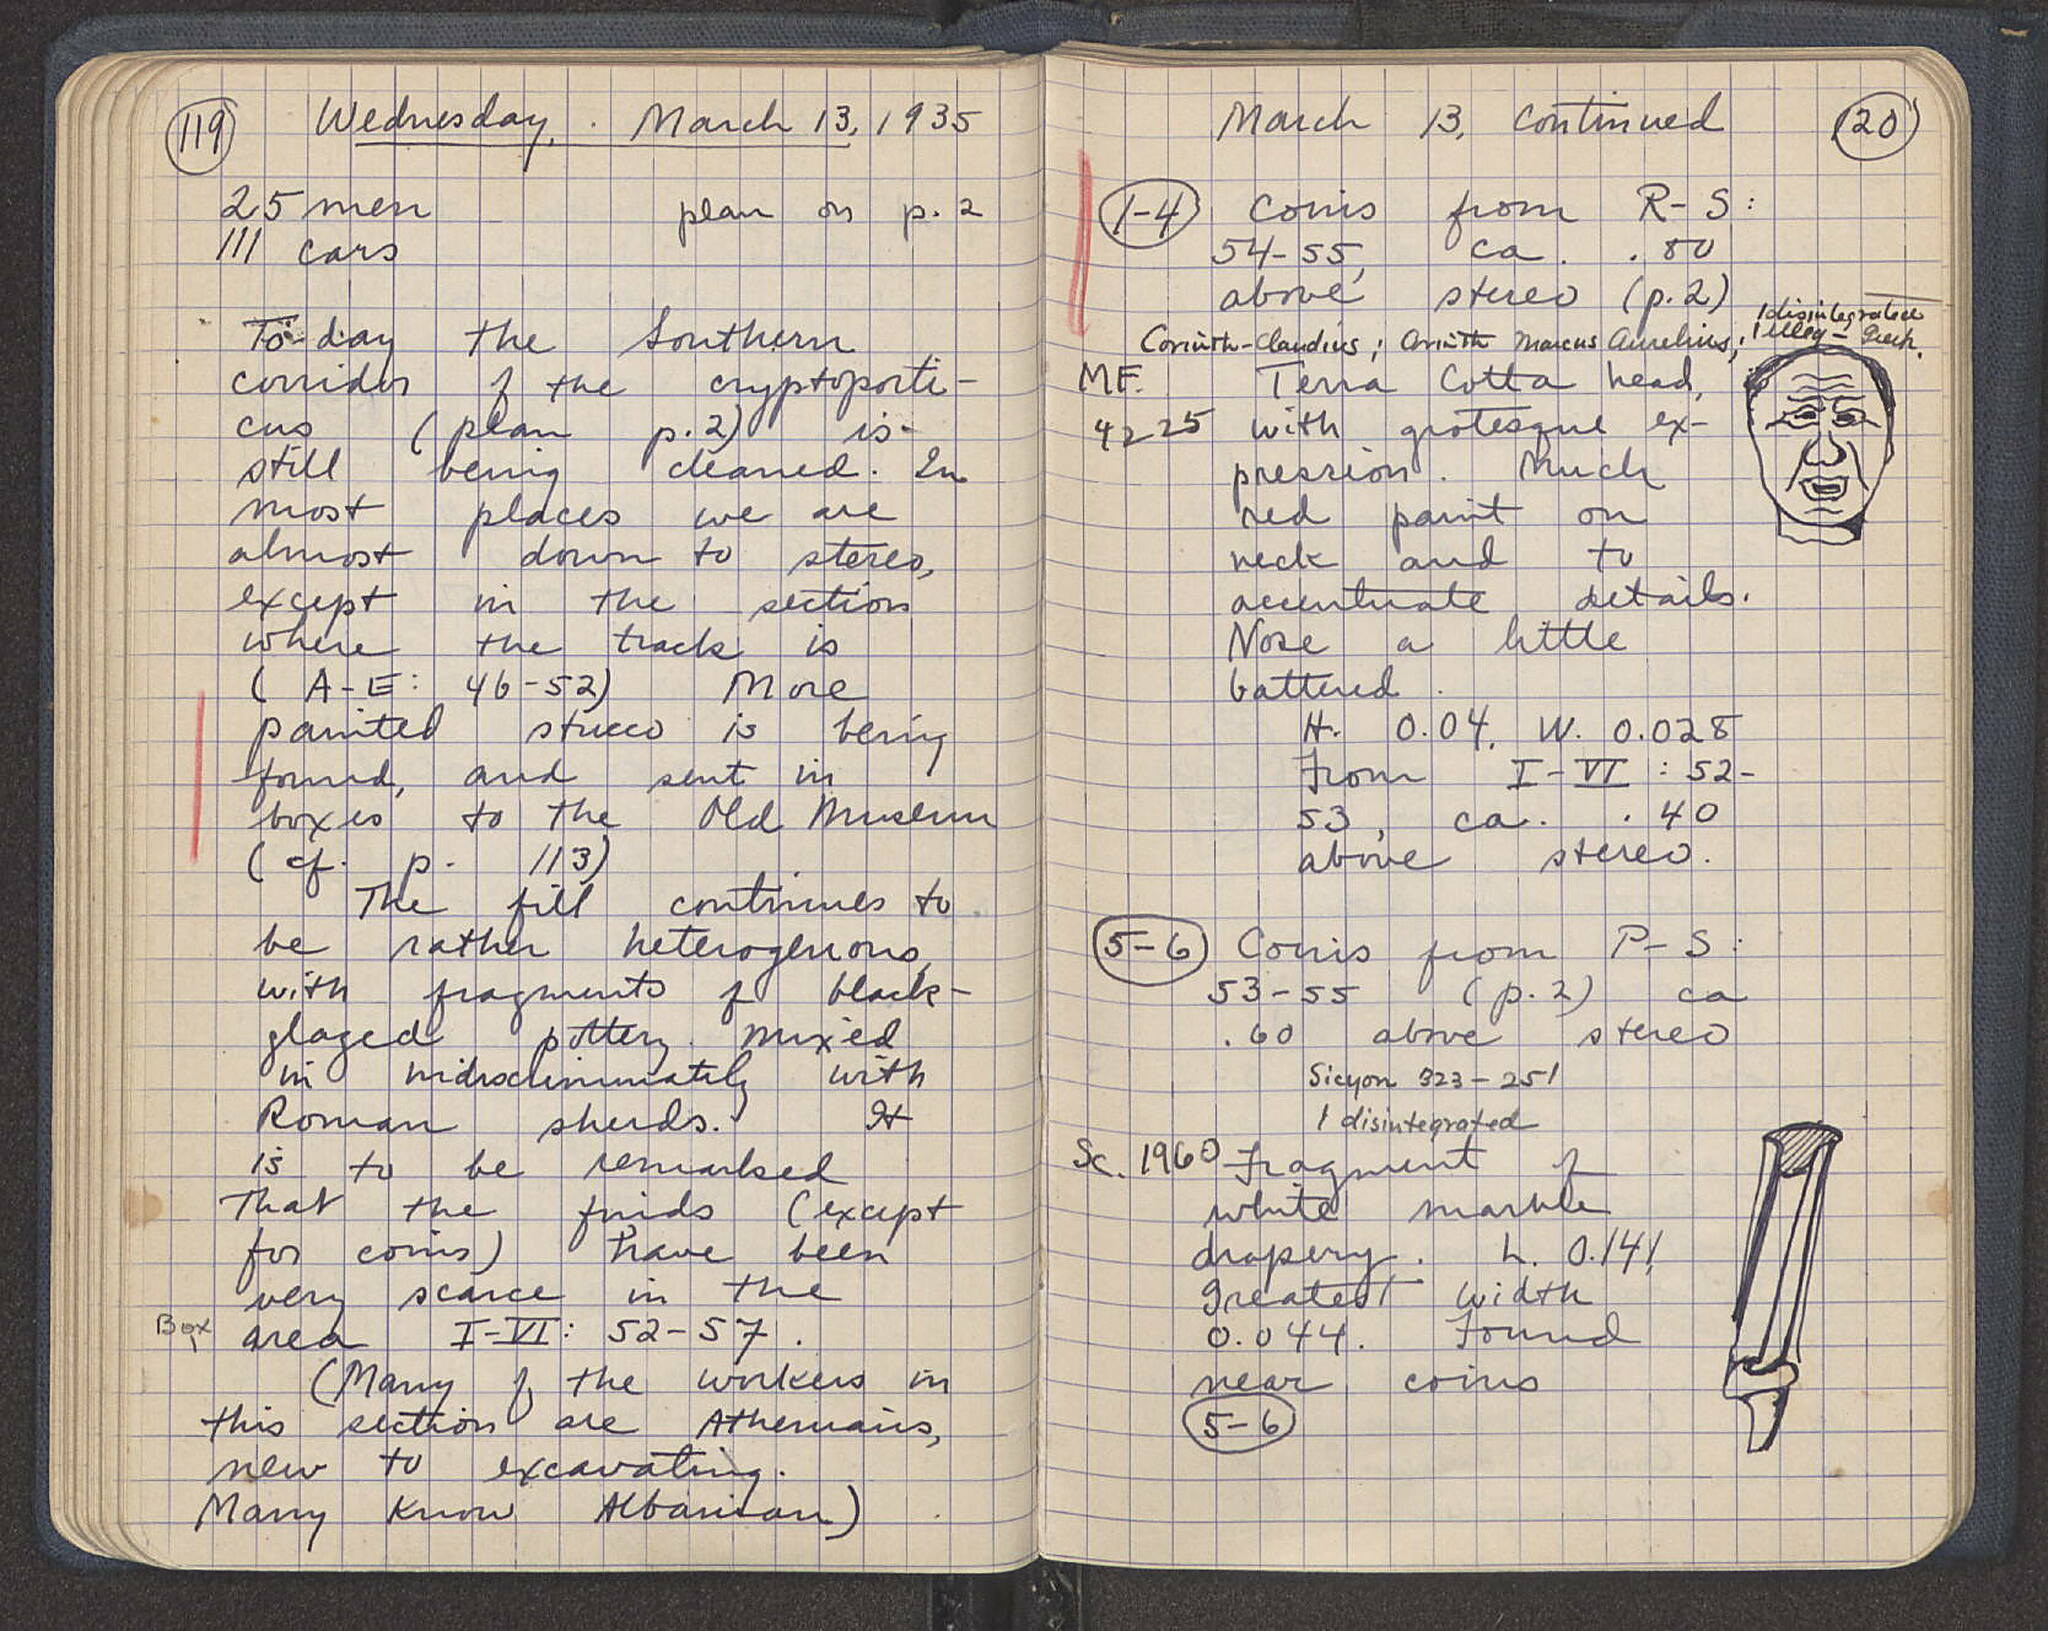 119
Wednesday, March 13, 1935
25 men plan on p. 2
111 cars
To-day the Southern
corridor of the cryptoporti-
cus (plan p. 2) is
still being cleaned. In
most places we are
almost down to stereo,
except in the section
where the track is
(A-E: 46-52) More
painted stucco is being
found, and sent in
boxes to the Old Museum
(cf. p. 113)
The fill continues to
be rather heterogenous,
with fragments of black-
glazed pottery mixed
in indiscriminately with
Roman sherds. It
is to be remarked
that the finds (except
for coins) have been
very scarce in the
Box area I-VI: 52-57.
(Many of the workers in
this section are Athenians,
new to excavating.
Many know Albanian)
March 13, continued 120
1-4 Coins from R-S:
54-55, ca. .80
above stereo (p. 2)
1 disintegrated
Corinth-Claudius; Corinth Marcus Aurelius; 1 illeg-Greek.
MF. Terra Cotta head,
4225 with grotesque ex-
pression. Much
red paint on
neck and to
accentuate details.
Nose a little
battered.
H. 0.04, W. 0.028
From I-VI: 52-
53, ca. .40
above stereo.
5-6 Coins from P-S:
53-55 (p. 2) ca
.60 above stereo
Sicyon 323-251
1 disintegrated
Sc. 1960 Fragment of
white marble
drapery. L. 0.141,
Greatest width
0.044. Found
near coins
5-6